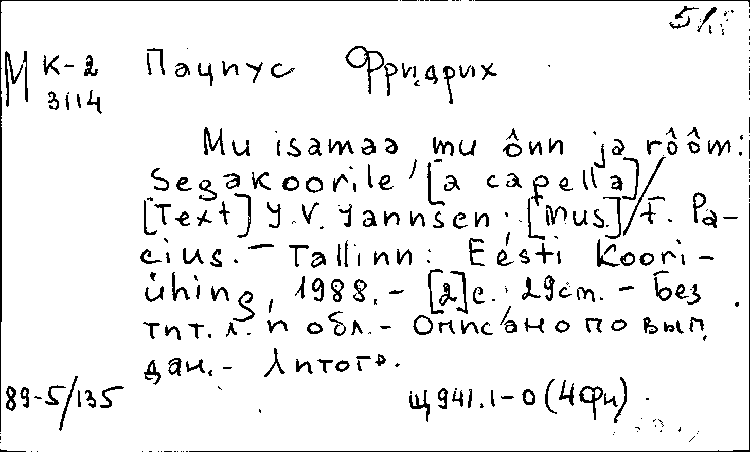 М К-2 Пациус Фридрих
3114
Mu isamaa, mu õnn ja rõõm:
Segakoorile / [a capella]
[Text] J.V. Jannsen; [Mus.] F. Pa-
cius. - Tallinn: Eesti Koori-
ühing, 1988. - [2]с.; 29cm. - Без
тит. л. и обл. - Описано по вып.
дан. - Литогр.
89-5/135 Щ941.1-0(4Фи)